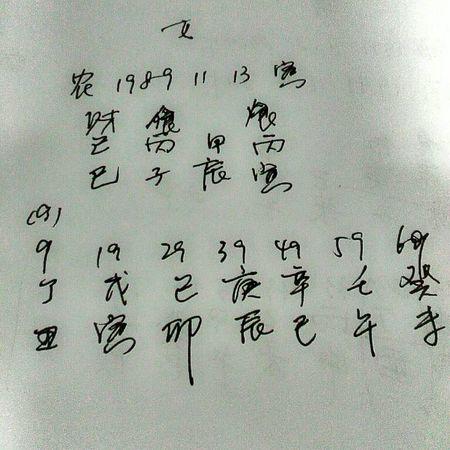 女
农 1989 11 13 寅
财 食 食
己 丙 甲 丙
巳 子 辰 寅
(9)
9 19 29 39 49 59 69
丁 戊 己 庚 辛 壬 癸
丑 寅 卯 辰 巳 午 未